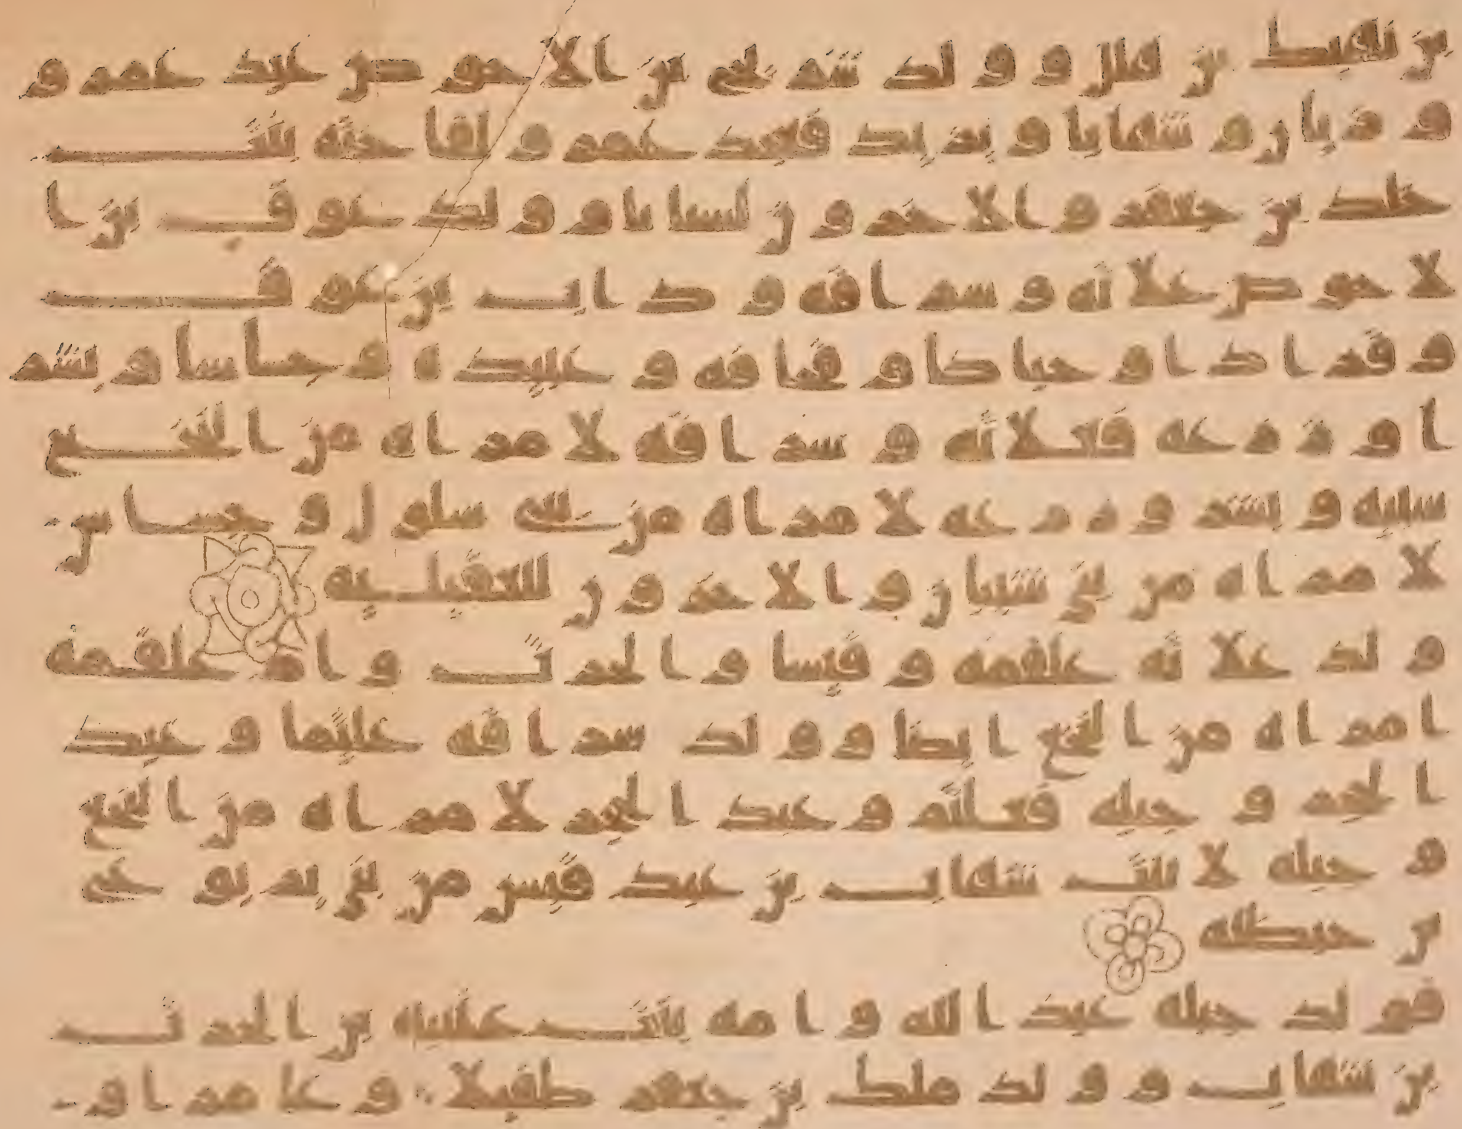 بن لقيط بن هلل و ولد شريح بن الاحوص عبد عمرو
و و شهابا و يزيد فعبد عمرو بنت
خلد بن جعفر و الاخرون لسبايا و ولد عوف بن ا
لاحوص علاثه و سراقه و بن عوف
و قرادا و و قحافه و عبيده و جساسا و بشر
ا و زرعه فعلاثه و سراقه لامراه من النخع
سبيه و بشر و زرعه لامراه من بني سلول و جساس
لامراه من بني شيبان و الاخرون للعقيليه
و لد علاثه علقمه و قيسا و الحرث و ام علقمه
امراه من النخع ايضا و ولد سراقه عليما و عبد
الحجر و جبله فعليم و عبد الحجر لامراه من النخع
و جبله لابنت شهاب بن عبد قيس من بني يربوع
بن حنظله
فولد جبله عبد الله و امه بنت عتيبه بن الحرث
بن شهاب و ولد ملك بن جعفر طفيلا و عامرا و